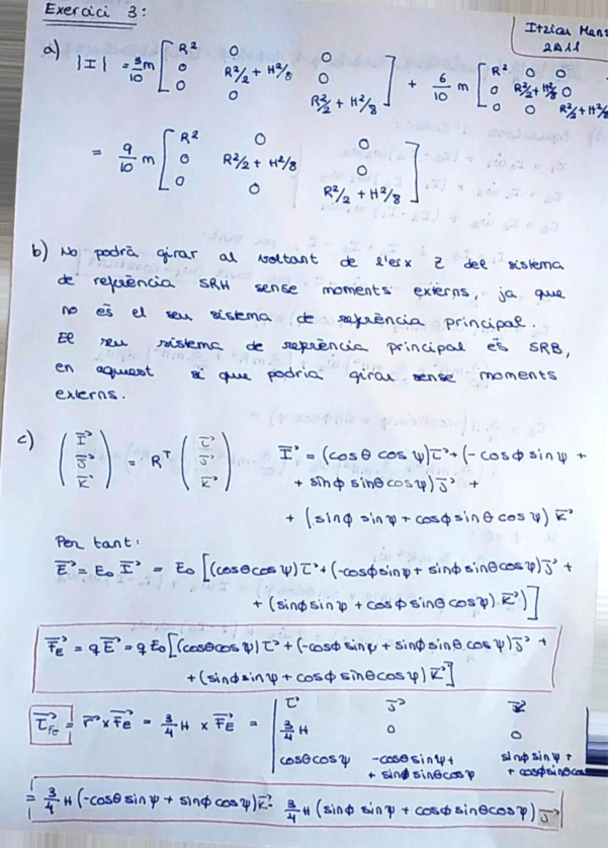 Exercici 3:
Itziar Mens
2A11
a) |I| = 3/10 m [ R² 0 0 ; 0 R²/2 + H²/8 0 ; 0 0 R²/2 + H²/8 ] + 6/10 m [ R² 0 0 ; 0 R²/2 + H²/8 0 ; 0 0 R²/2 + H²/8 ]
= 9/10 m [ R² 0 0 ; 0 R²/2 + H²/8 0 ; 0 0 R²/2 + H²/8 ]
b) No podrà girar al voltant de l'eix Z del sistema
de referència SRH sense moments externs, ja que
no és el seu sistema de referència principal.
El seu sistema de referència principal és SRB,
en aquest si que podria girar sense moments
externs.
c) ( I⃗ J⃗ K⃗ ) = Rᵀ ( i⃗ j⃗ k⃗ ) I⃗ = (cosθ cosψ) i⃗ + (-cosφ sinψ +
+ sinφ sinθ cosψ) j⃗ +
+ (sinφ sinψ + cosφ sinθ cosψ) k⃗
Per tant:
E⃗ = E₀ I⃗ = E₀ [(cosθ cosψ) i⃗ + (-cosφ sinψ + sinφ sinθ cosψ) j⃗ +
+ (sinφ sinψ + cosφ sinθ cosψ) k⃗)]
F⃗E = q E⃗ = q E₀ [(cosθ cosψ) i⃗ + (-cosφ sinψ + sinφ sinθ cosψ) j⃗ +
+ (sinφ sinψ + cosφ sinθ cosψ) k⃗]
τ⃗Fe = r⃗ x F⃗e = 3/4 H x F⃗e = | i⃗ j⃗ k⃗
3/4 H 0 0
cosθ cosψ -cosθ sinψ + sinφ sinψ +
+ sinφ sinθ cosψ + cosφ sinθ cos
= 3/4 H (-cosθ sinψ + sinφ cosψ) k⃗ - 3/4 H (sinφ sinψ + cosφ sinθ cosψ) j⃗